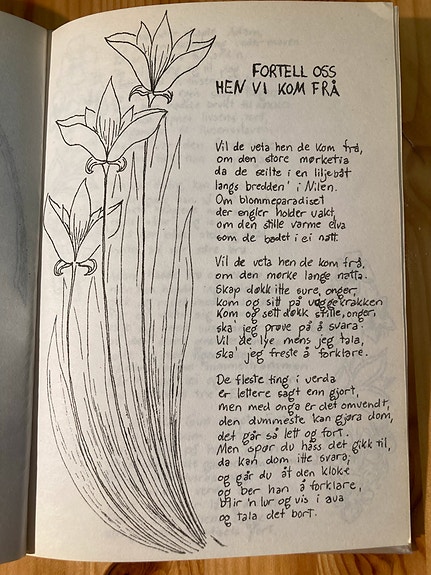 FORTELL OSS
HEN VI KOM FRÅ
Vil de veta hen de kom frå,
om den store mørketia
da de seilte i en liljebåt
langs bredden' i Nilen.
Om blommeparadiset
der engler holder vakt,
om den stille varme elva
som de badet i ei natt.
Vil de veta hen de kom frå,
om den mørke lange natta.
Skap døkk itte sure, onger,
kom og sitt på vøggekrakken
Kom og sett døkk stille, onger,
ska' jeg prøve på å svara.
Vil de lye mens jeg tala,
ska' jeg freste å forklare.
De fleste ting i verda
er lettere sagt enn gjort,
men med onga er det omvendt,
den dummeste kan gjøra dom,
det går så lett og fort.
Men spør du håss det gikk til,
da kan dom itte svara,
og går du åt den kloke
og ber han å forklare,
blir 'n lur og vis i aua
og tala det bort.